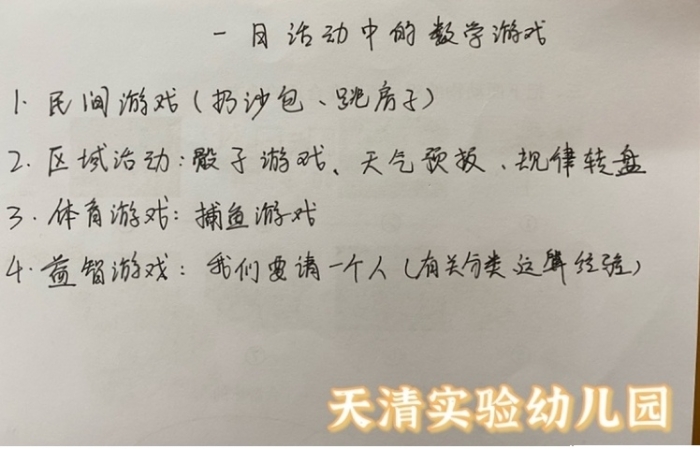 一日活动中的数学游戏
1. 民间游戏(扔沙包、跳房子)
2. 区域活动:骰子游戏、天气预报、规律转盘
3. 体育游戏:捕鱼游戏
4. 益智游戏:我们要请一个人(有关分类 这 经验)
天清实验幼儿园